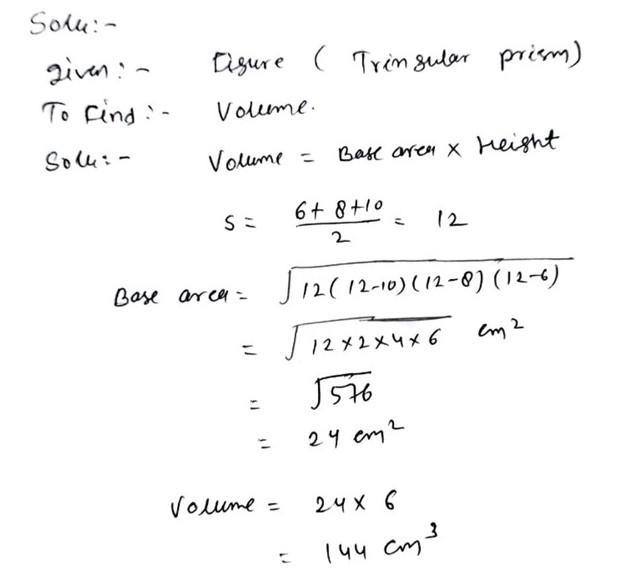 Solu:-
given:- Figure ( Tringular prism)
To Find:- Volume.
Solu:- Volume = Base area x Height
S = 6+8+10/2 = 12
Base area = √12(12-10)(12-8)(12-6)
= √12x2x4x6 cm²
= √576
= 24 cm²
Volume = 24 x 6
= 144 cm³